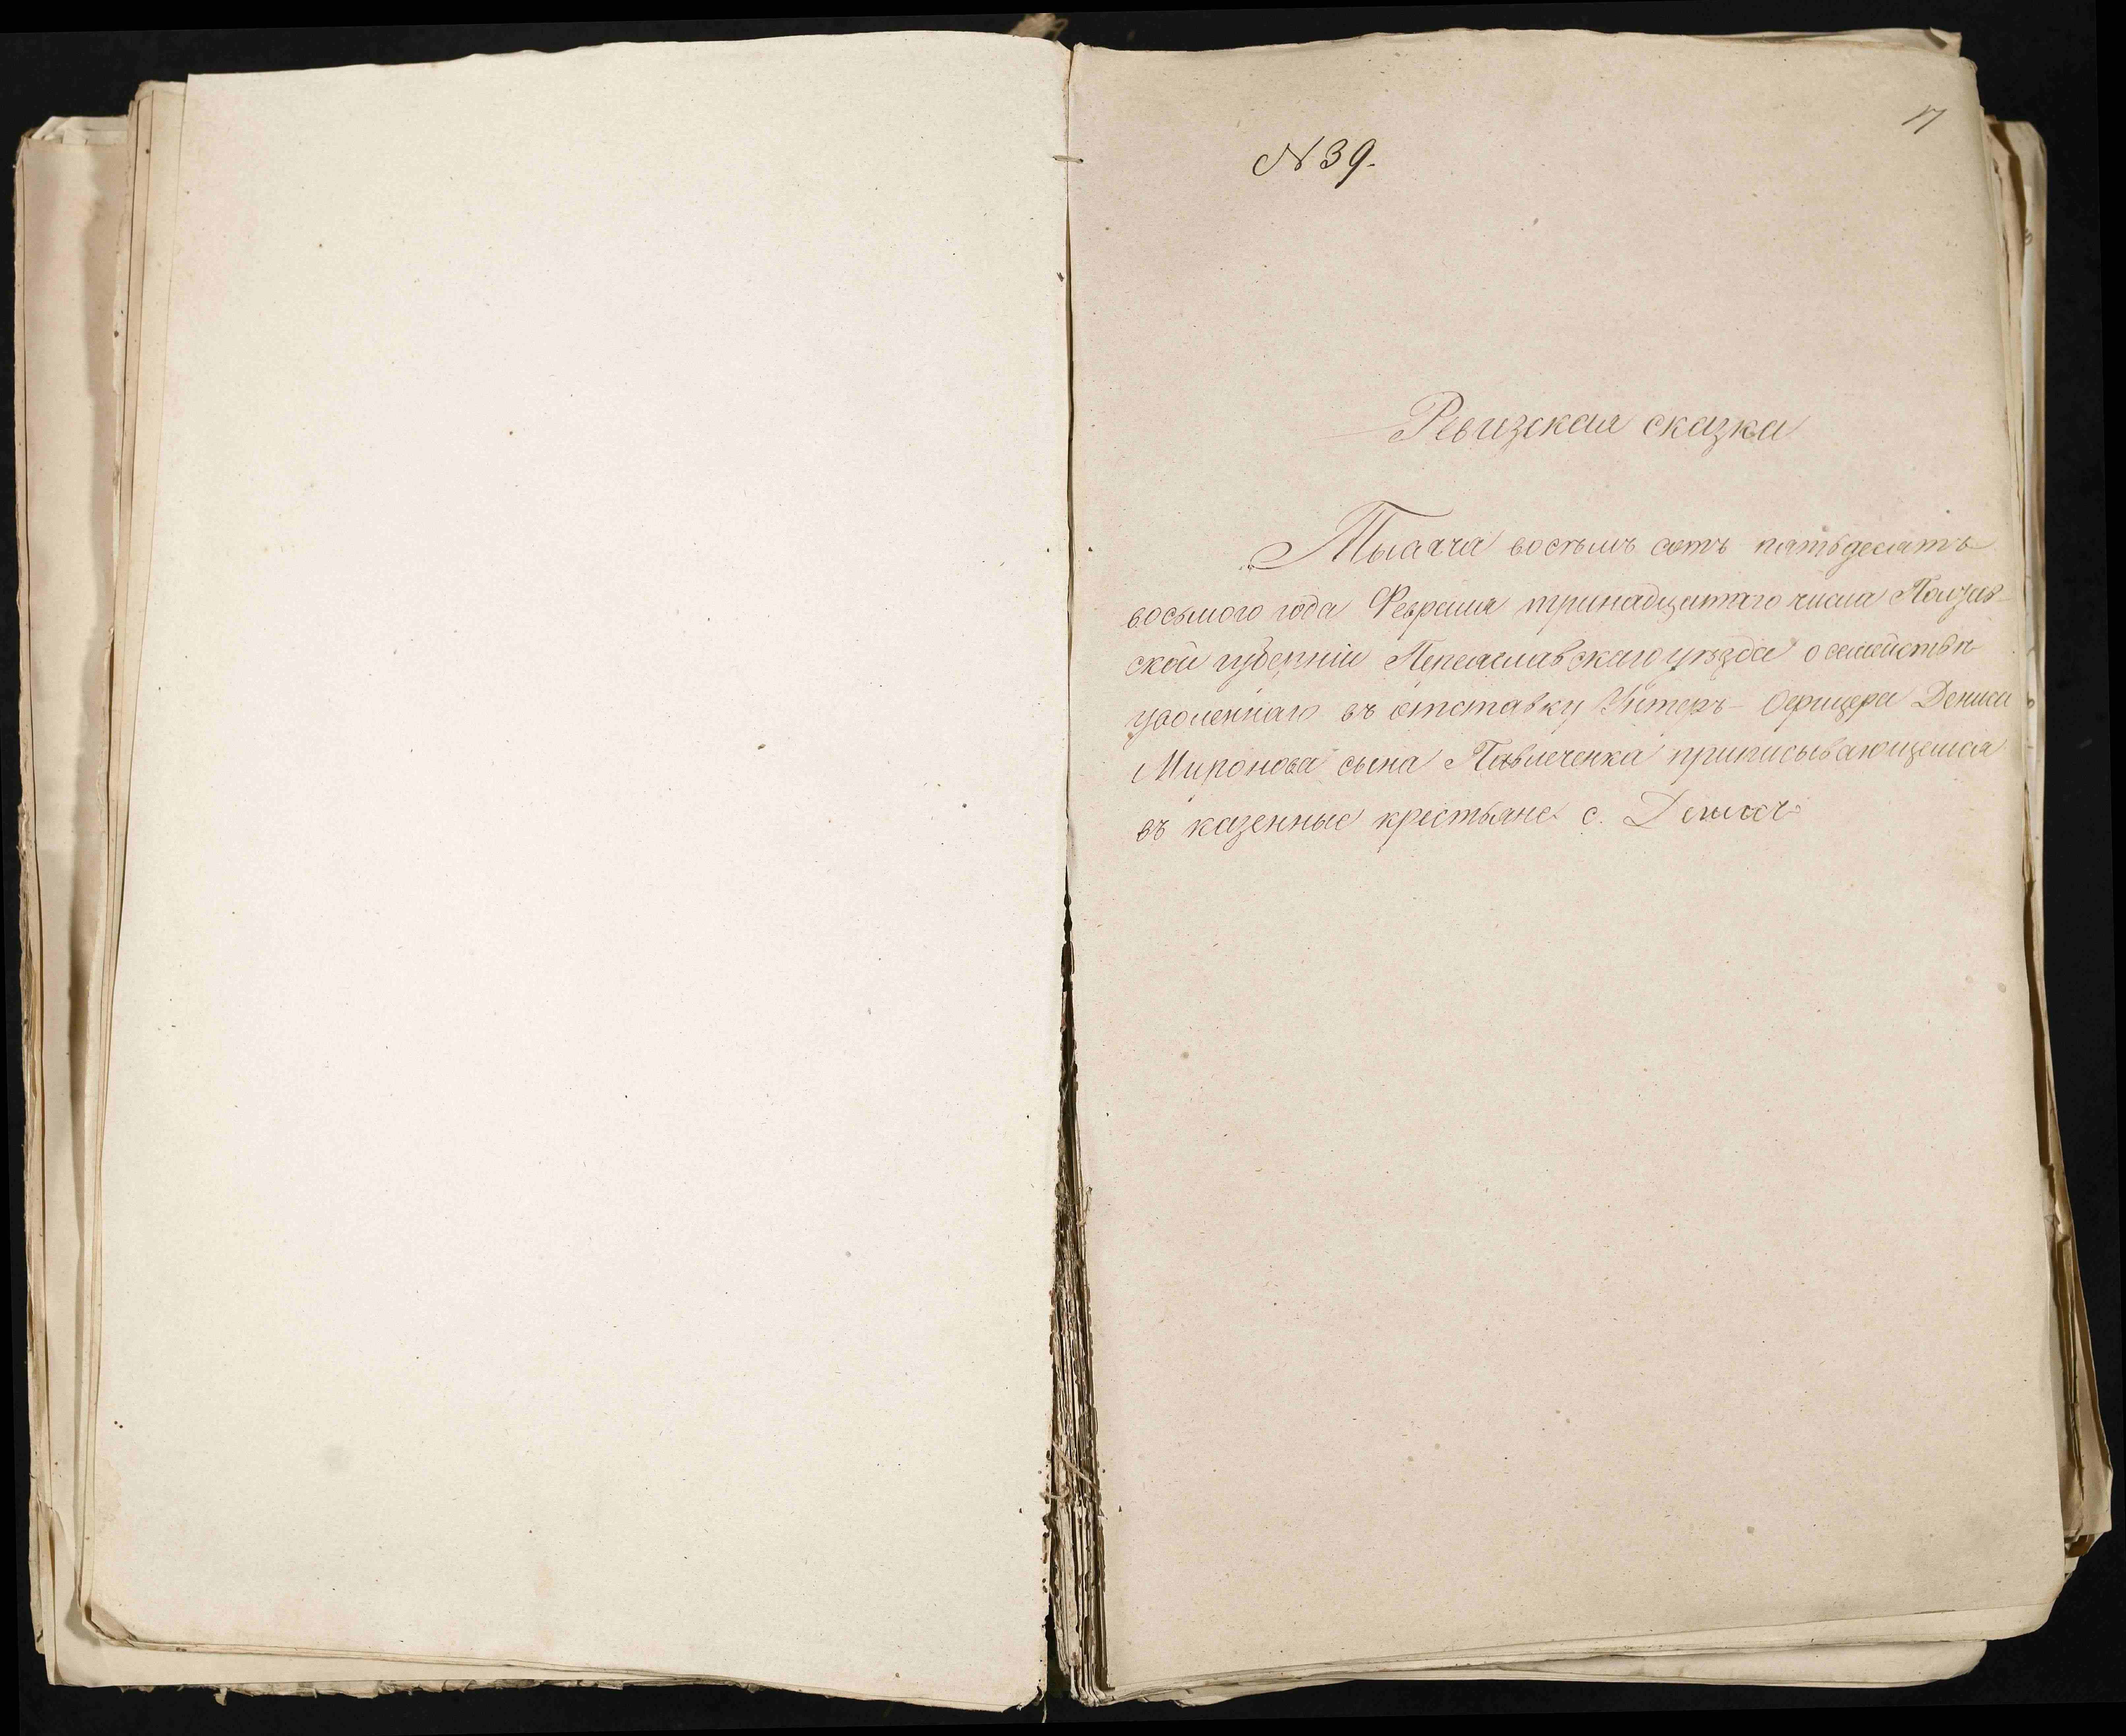 17
N 39.
Ревизская сказка
Тысяча восѣмъ сотъ пятьдесятъ
восьмого года Февраля тринадцатого числа Полтав-
ской губерніи Переяславскаго уѣзда о семействѣ
уволеннаго въ отставку Унтеръ-Офицера Дениса
Миронова сына Павлеченка приписывающемся
въ казенные крестьяне с.